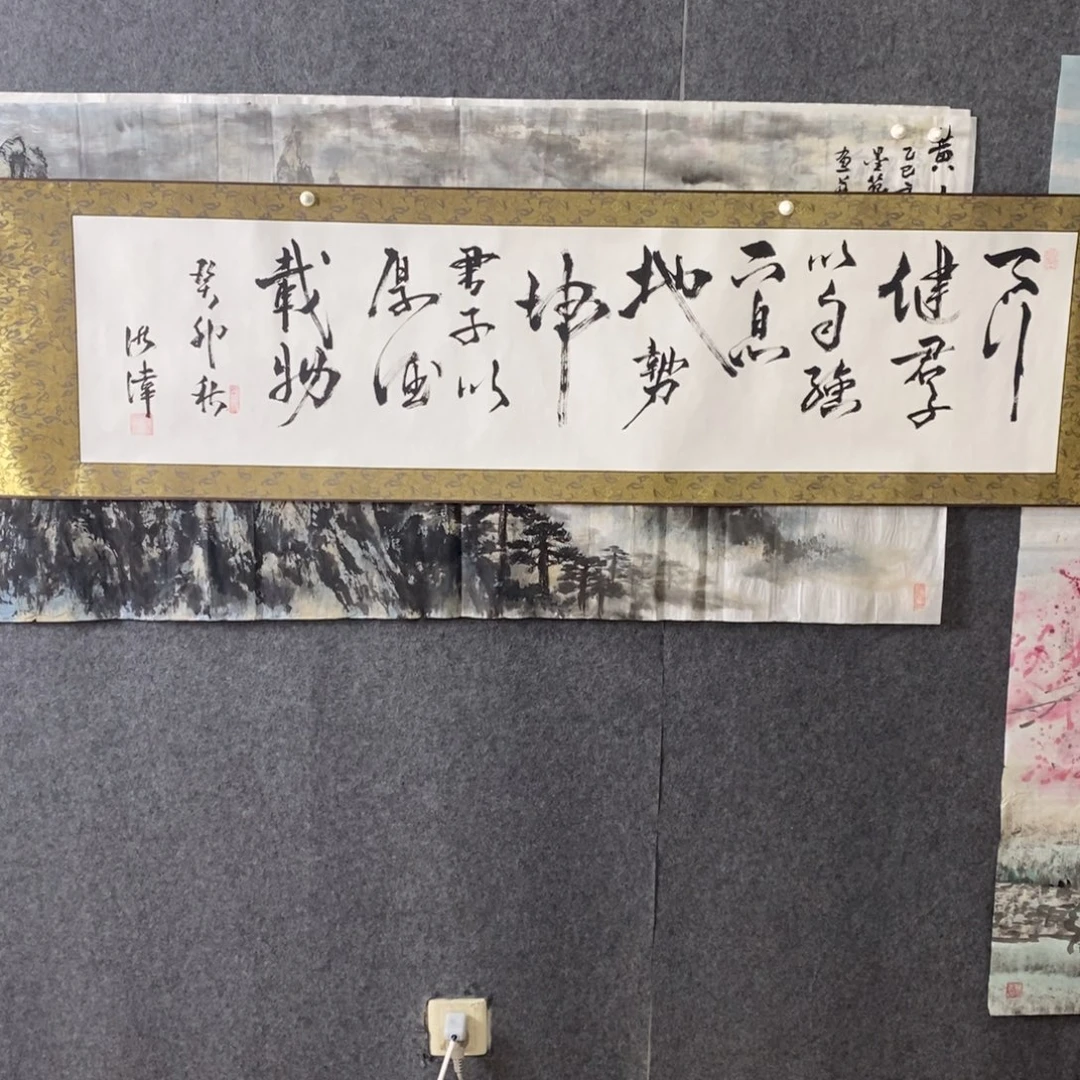 天行
健君子
以自強
不息
地勢
坤
君子以
厚德
載物
癸卯秋
洪偉
黄
乙巳
墨